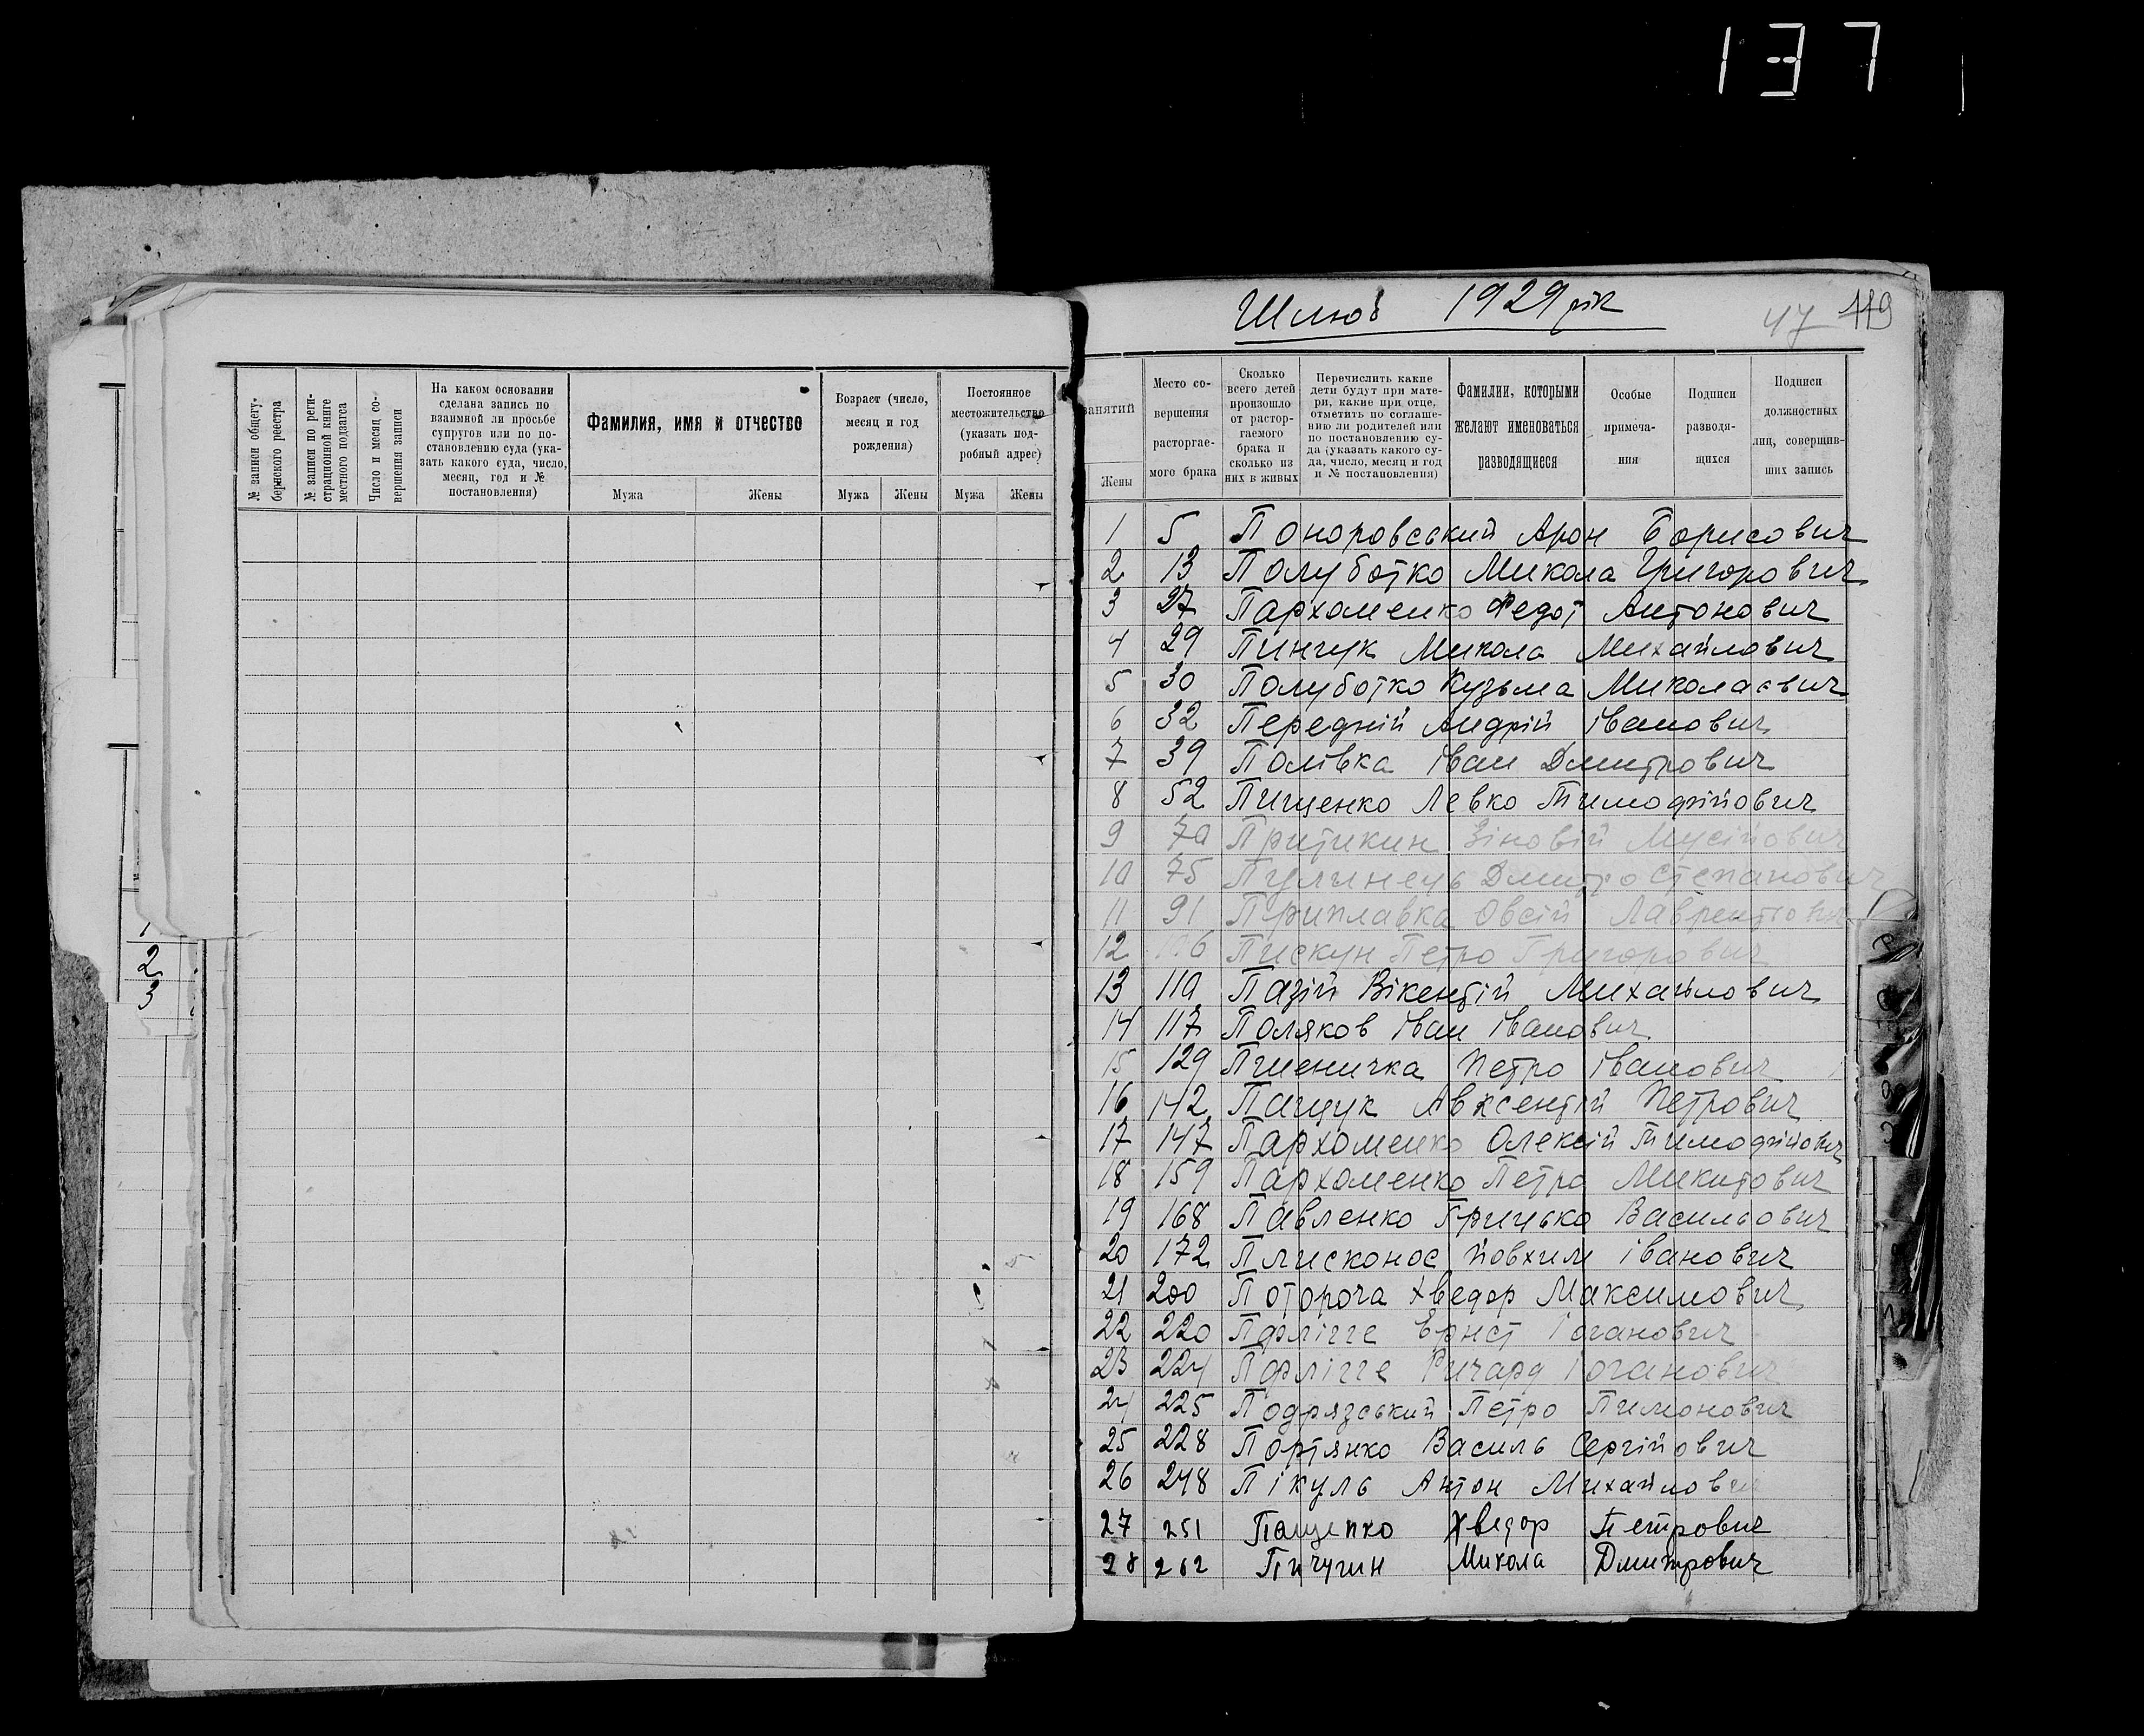 137
№ записи общегу-
бернского реестра
№ записи по реги-
страционной книге
местного подзагса
Число и месяц со-
вершения записи
На каком основании
сделана запись по
взаимной ли просьбе
супругов или по по-
становлению суда (ука-
зать какого суда, число,
месяц, год и №
постановления)
Фамилия, имя и отчество
Мужа
Жены
Возраст (число,
месяц и год
рождения)
Мужа
Жены
Постоянное
местожительство
(указать под-
робный адрес)
Мужа
Жены
2
3
Шлюб 1929 рік
47 119
занятий
Жены
Место со-
вершения
расторгае-
мого брака
Сколько
всего детей
произошло
от растор-
гаемого
брака и
сколько из
них в живых
Перечислить какие
дети будут при мате-
ри, какие при отце,
отметить по соглаше-
нию ли родителей или
по постановлению су-
да (указать какого су-
да, число, месяц и год
и № постановления)
Фамилии, которыми
желают именоваться
разводящиеся
Особые
примеча-
ния
Подписи
разводя-
щихся
Подписи
должностных
лиц, соверщив-
ших запись
1 5 Поноровський Арон Борисович
2 13 Полуботко Микола Григорович
3 27 Пархоменко Федот Антонович
4 29 Пинчук Микола Михайлович
5 30 Полуботко Кузьма Миколаєвич
6 32 Передній Андрій Іванович
7 39 Полівка Іван Дмитрович
8 52 Пищенко Левко Тимофійович
9 70 Притикин Зіновій Мусійович
10 75 Пулинець Дмитро Степанович
11 91 Приплавка Овсій Лаврентович
12 106 Пискун Петро Григорович
13 110 Пазій Вікентій Михайлович
14 117 Поляков Іван Іванович
15 129 Пшеничка Петро Іванович
16 142 Пащук Авксентій Петрович
17 147 Пархоменко Олексій Тимофійович
18 159 Пархоменко Петро Микитович
19 168 Павленко Грицько Васильович
20 172 Плисконос Йовхим Іванович
21 200 Потороча Хведор Максимович
22 220 Пфлігге Ернст Іоганович
23 224 Пфлігге Ричард Іоганович
24 225 Подрязський Петро Пимонович
25 228 Портянко Василь Сергійович
26 248 Пікуль Антон Михайлович
27 251 Пащенко Хведор Петрович
28 262 Пичугин Микола Дмитрович